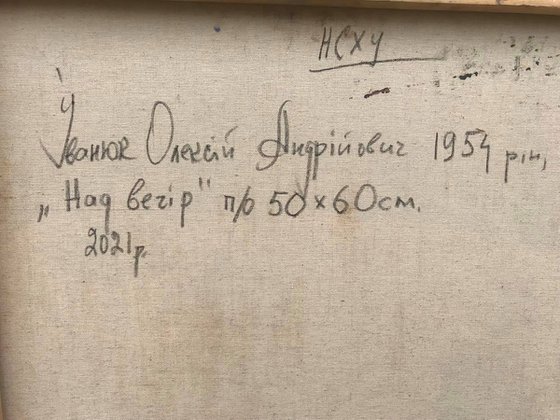 НСХУ
Іванюк Олексій Андрійович 1954 р.н,
„Над вечір" п/о 50х60см.
2021р.